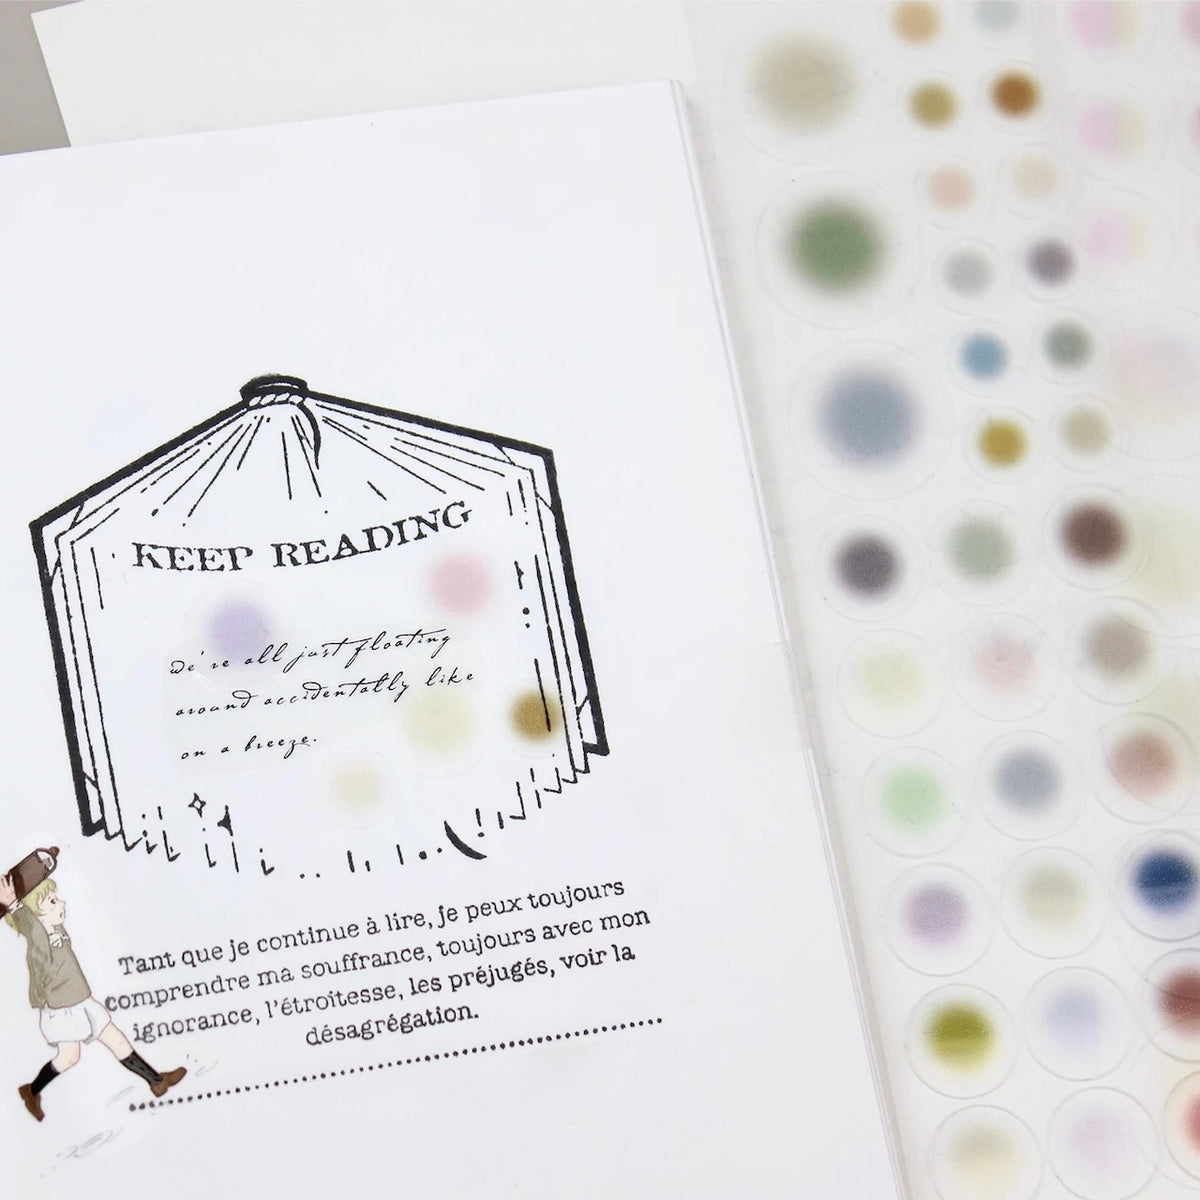 KEEP READING
We're all just floating
around accidentally like
on a breeze.
Tant que je continue à lire, je peux toujours
comprendre ma souffrance, toujours avec mon
ignorance, l'étroitesse, les préjugés, voir la
désagrégation.